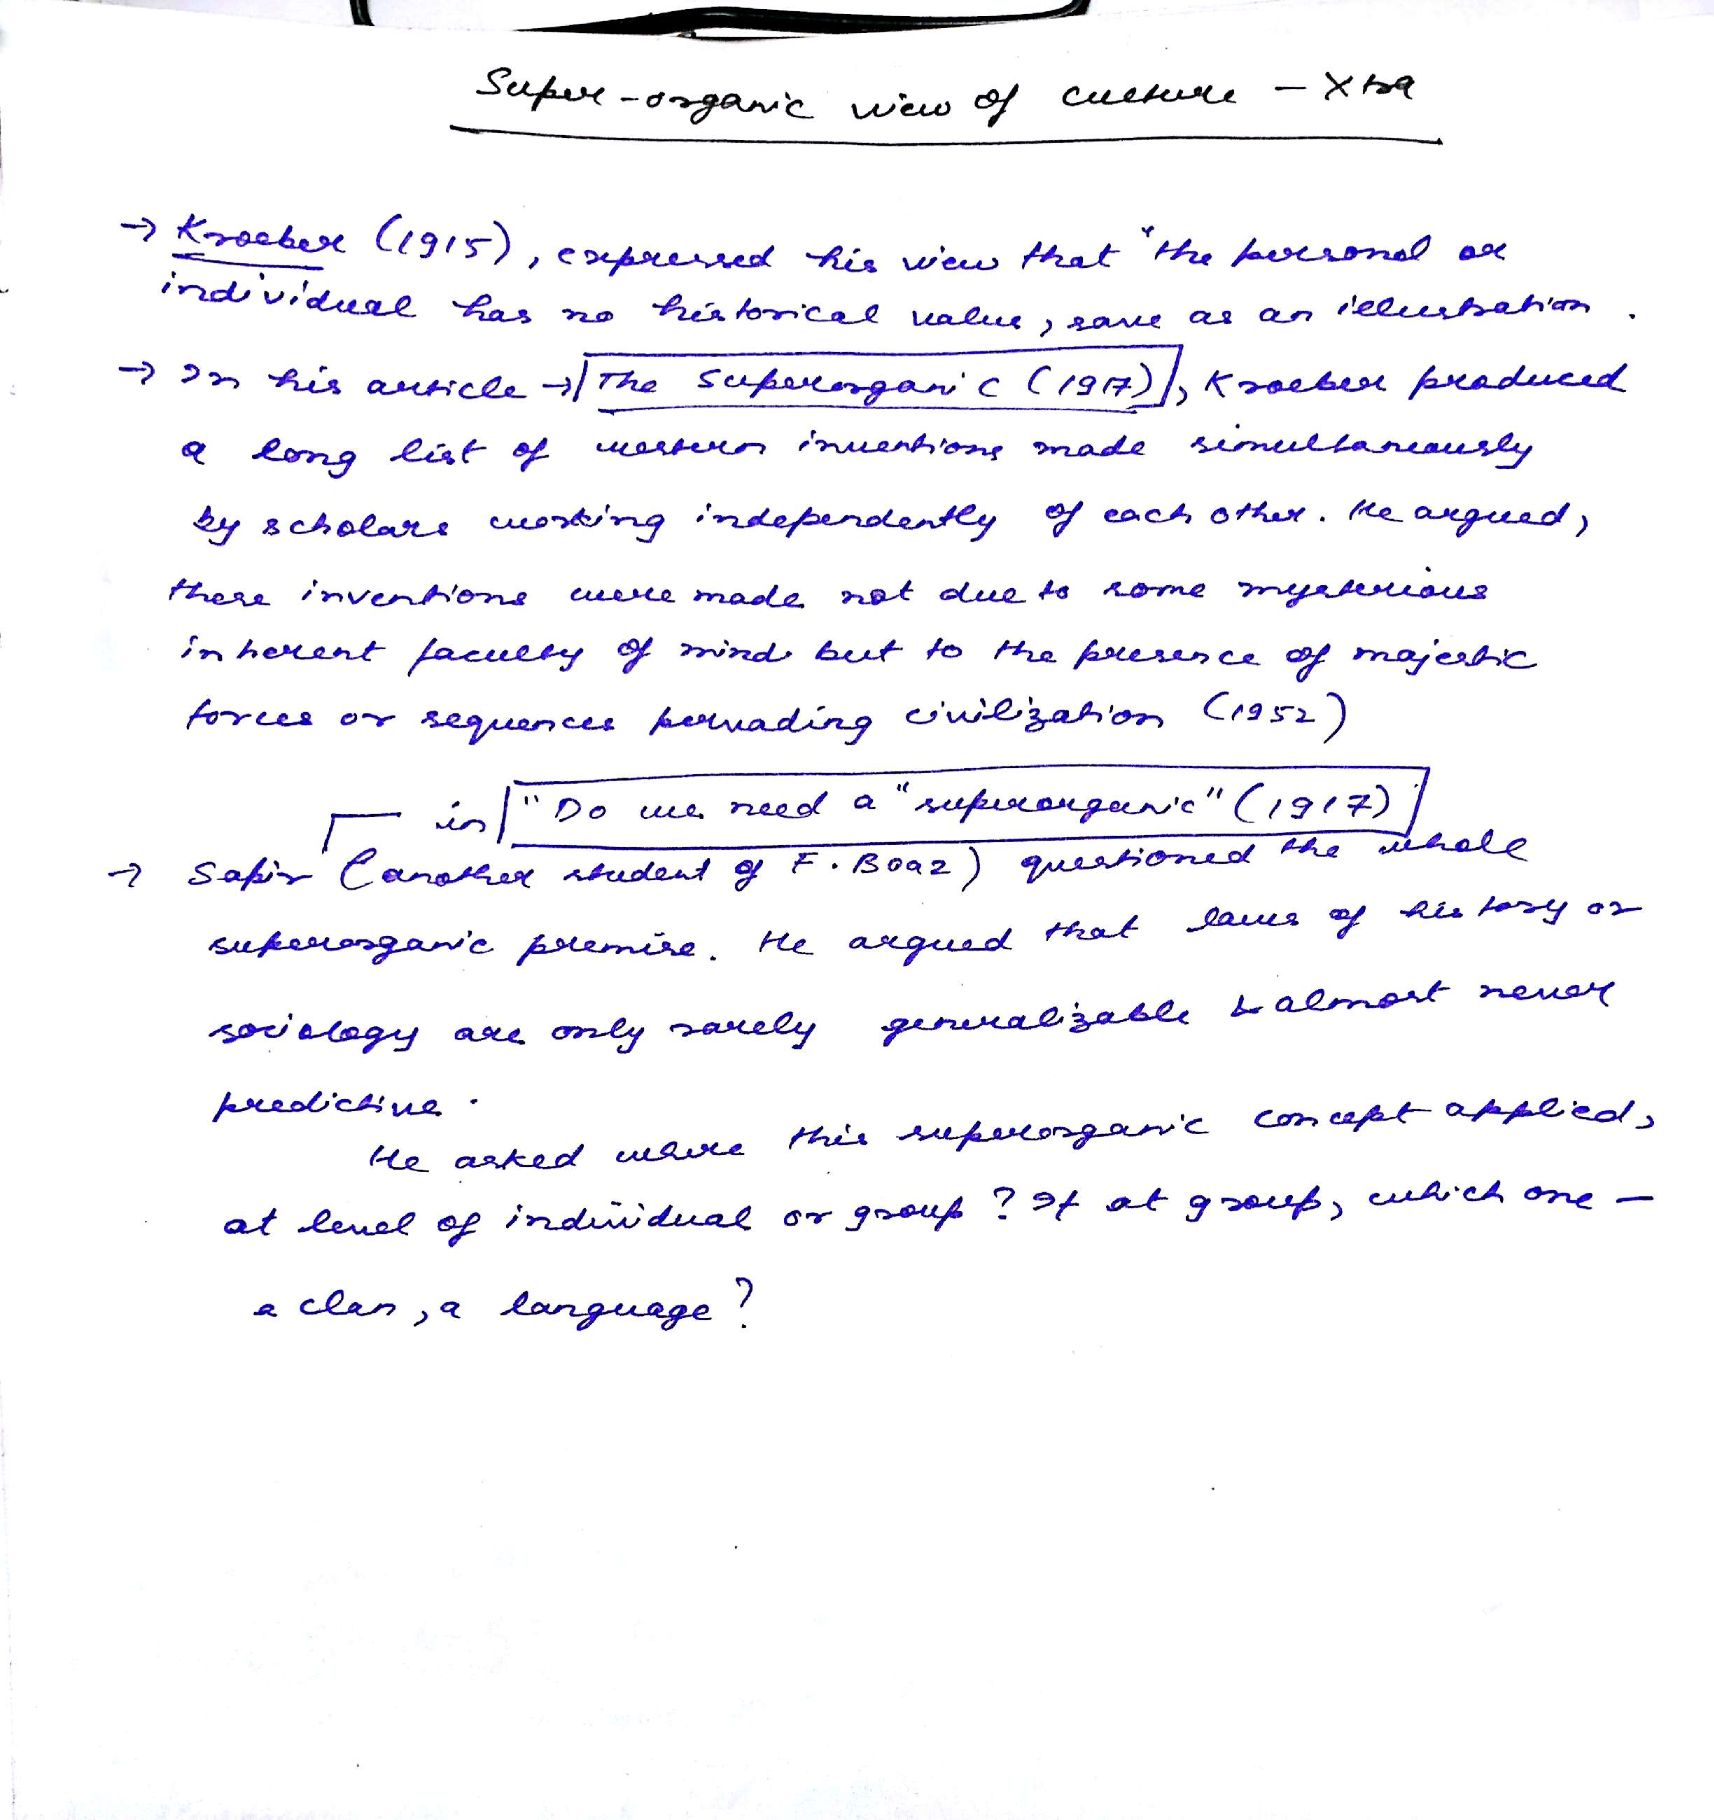 Super-organic view of culture - Xtra
→ Kroeber (1915), expressed his view that "the personal or
individual has no historical value, save as an illustration.
→ In his article → The Superorganic (1917), Kroeber produced
a long list of western inventions made simultaneously
by scholars working independently of each other. He argued,
these inventions were made not due to some mysterious
inherent faculty of mind but to the presence of majestic
forces or sequences pervading civilization (1952)
in "Do we need a "superorganic" (1917)
→ Sapir (another student of F. Boaz) questioned the whole
superorganic premise. He argued that laws of history or
sociology are only rarely generalizable & almost never
predictive.
He asked where this superorganic concept applied,
at level of individual or group? If at group, which one -
a clan, a language?